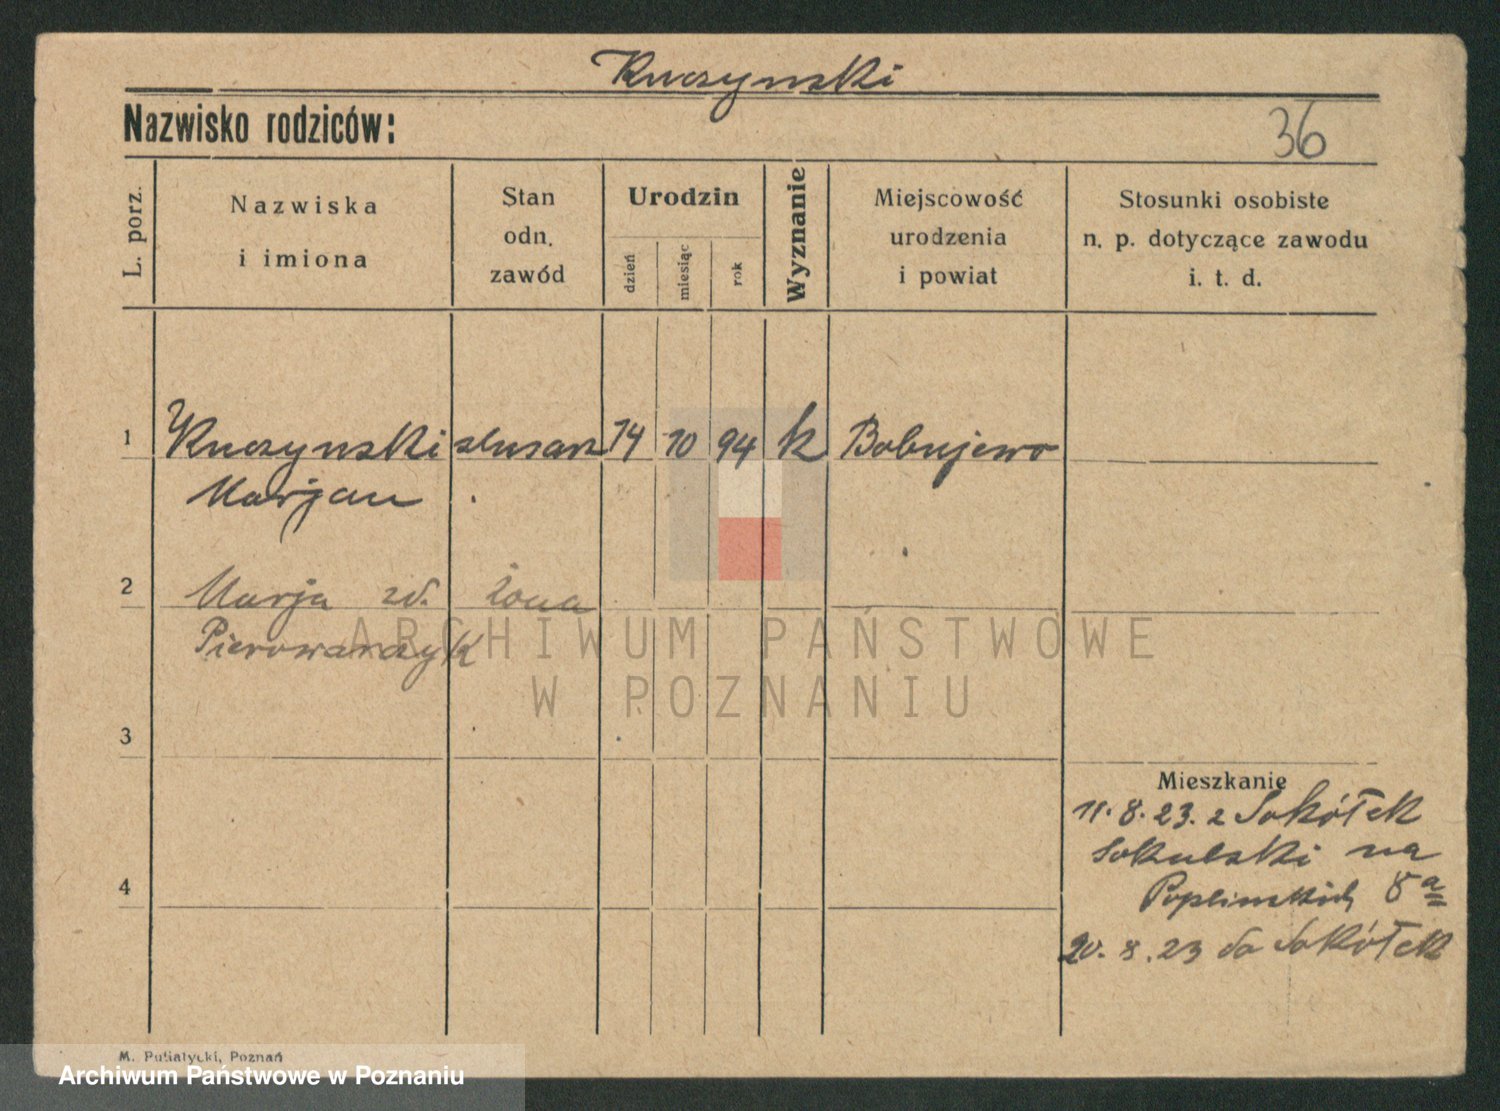 Kuczynski
Nazwisko rodziców:
36
L. porz.
Nazwiska
i imiona
Stan
odn.
zawód
Urodzin
dzień
miesiąc
rok
Wyznanie
Miejscowość
urodzenia
i powiat
Stosunki osobiste
n. p. dotyczące zawodu
i. t. d.
1 Kuczynski slusarz 14 10 94 k Bobujewo
Marjan
2 Marja zd. żona
Pierowarczyk
ARCHIWUM PAŃSTWOWE
W POZNANIU
3
Mieszkanie
11. 8. 23. z Sokółek
Sokulski na
4
Poplinskich 8a
20. 8. 23 do Sokółek
M. Putiatycki, Poznań
Archiwum Państwowe w Poznaniu